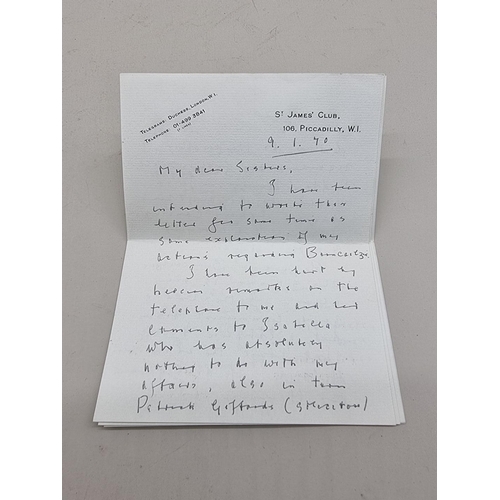 Telegrams: Duchess, London, W.1.
Telephone: 01-499 3841
St James' Club,
106, Piccadilly, W.1.
9. 1. 70
My dear Sisters,
I have been
intending to write this
letter for some time as
some explanation of my
actions regarding
I have been hurt by
remarks on the
telephone to me and her
comments to Isabella
who has absolutely
nothing to do with my
affairs, also in turn
Patrick Giffords (solicitor)